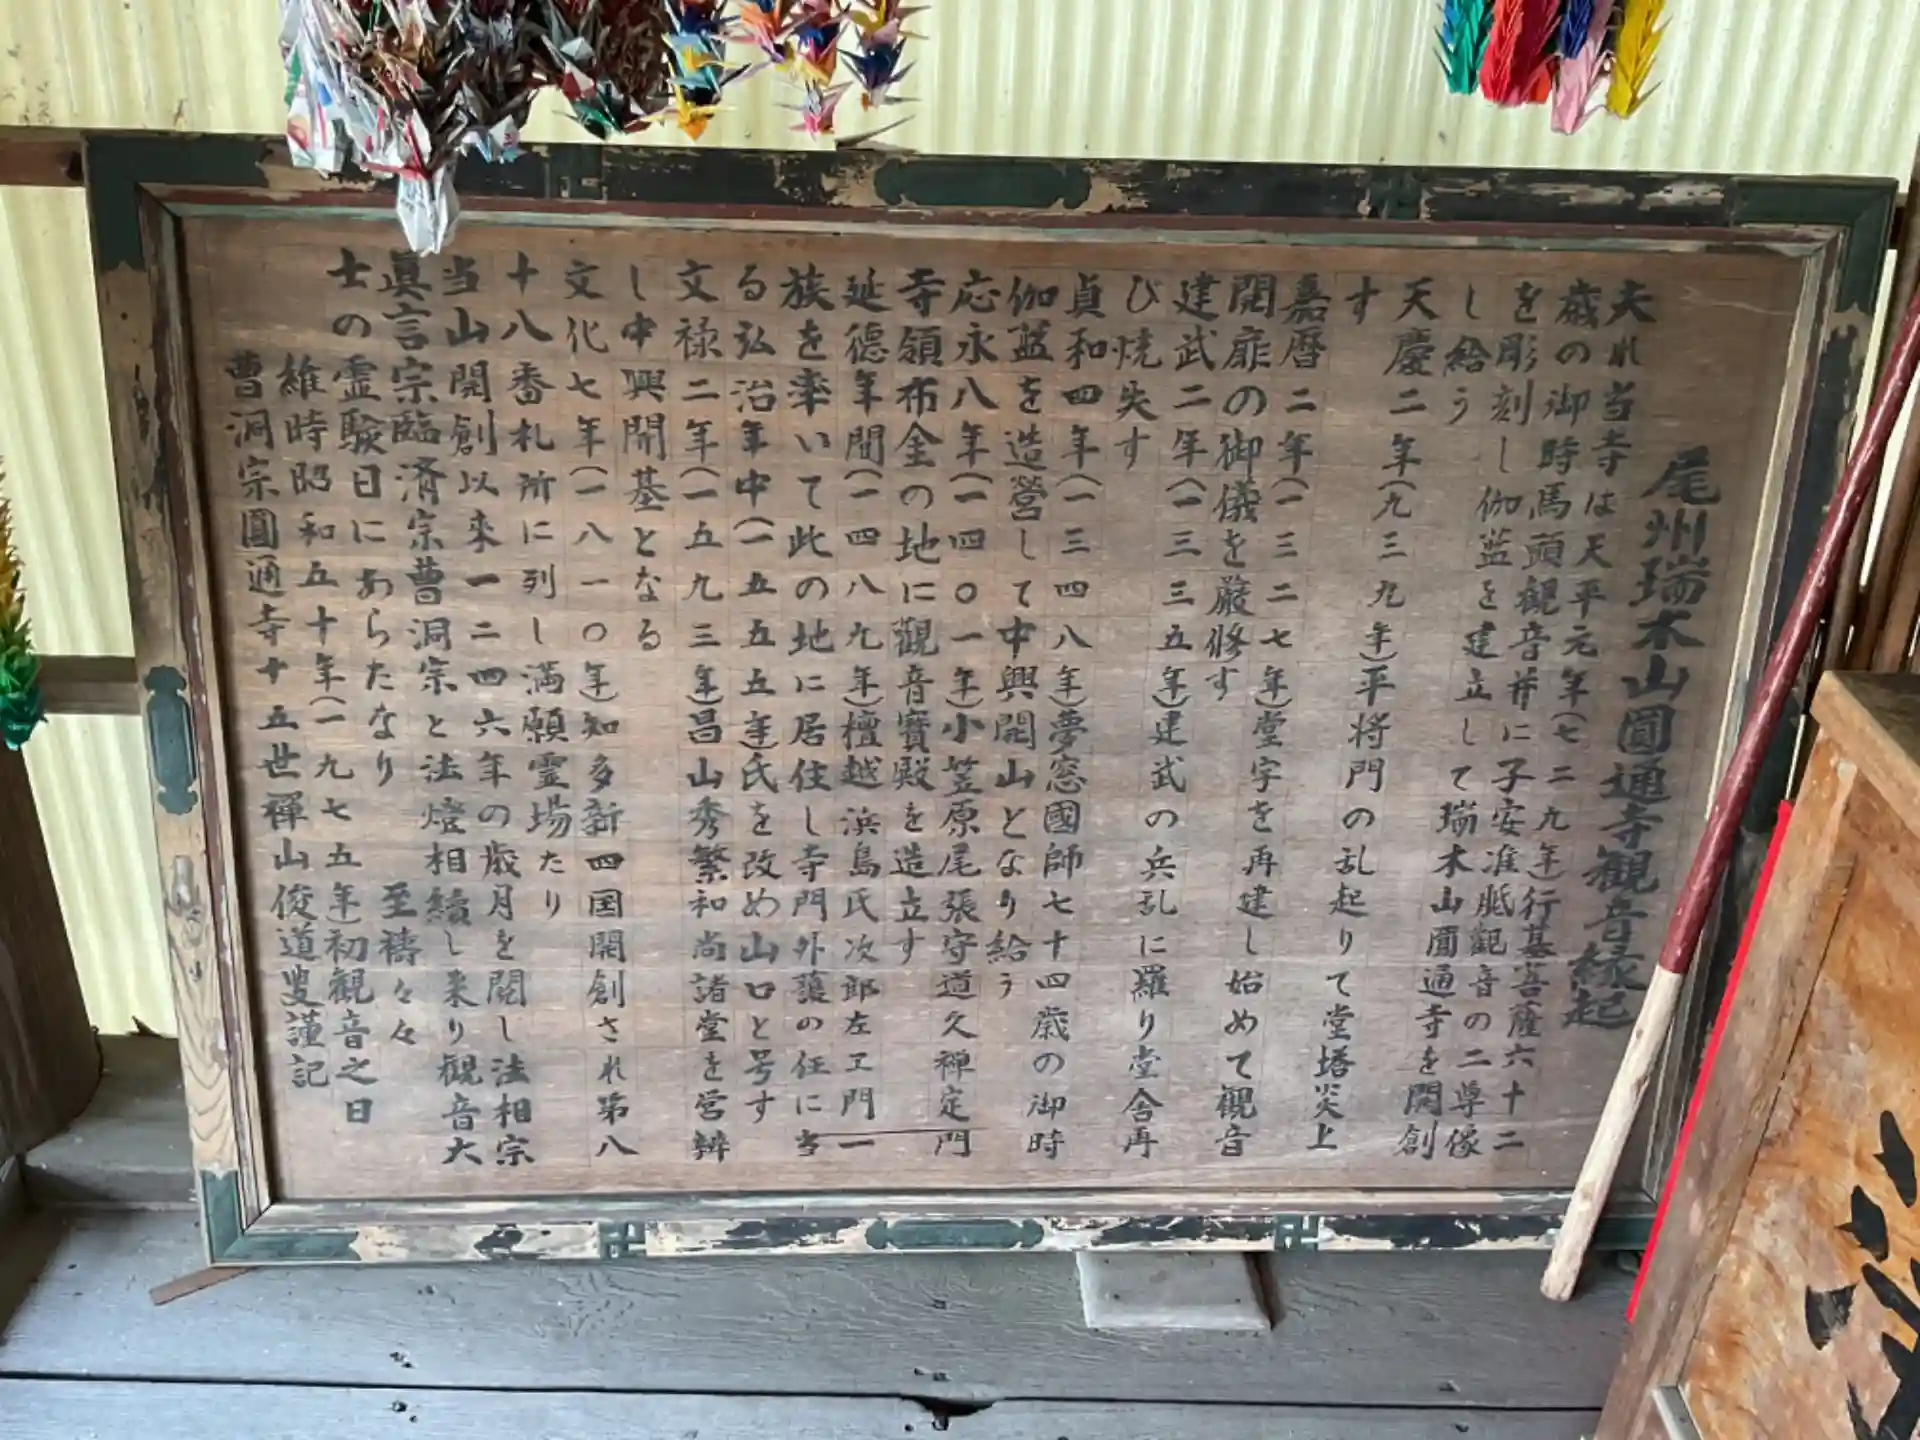 尾州瑞木山圓通寺観音縁起
夫れ当寺は天平元年(七二九年)行基菩薩六十二
歳の御時馬頭観音并に子安准胝観音の二尊像
を彫刻し伽藍を建立して瑞木山圓通寺を開創
し給う
天慶二年(九三九年)平将門の乱起りて堂塔炎上
す
嘉暦二年(一三二七年)堂宇を再建し始めて観音
開扉の御儀を厳修す
建武二年(一三三五年)建武の兵乱に羅り堂舎再
び焼失す
貞和四年(一三四八年)夢窓國師七十四歳の御時
伽藍を造營して中興開山となり給う
応永八年(一四〇一年)小笠原尾張守道久禅定門
寺領布金の地に觀音寶殿を造立す
延徳年間(一四八九年)檀越浜島氏次郎左ヱ門一
族を率いて此の地に居住し寺門外護の任に当
る弘治年中(一五五五年)氏を改め山口と号す
文禄二年(一五九三年)昌山秀繁和尚諸堂を営辨
し中興開基となる
文化七年(一八一〇年)知多新四国開創され第八
十八番札所に列し満願霊場たり
当山開創以来一二四六年の歳月を閲し法相宗
眞言宗臨済宗曹洞宗と法燈相續し来り観音大
士の霊験日にあらたなり 至禱々々
維時昭和五十年(一九七五年)初観音之日
曹洞宗圓通寺十五世禪山俊道叟謹記